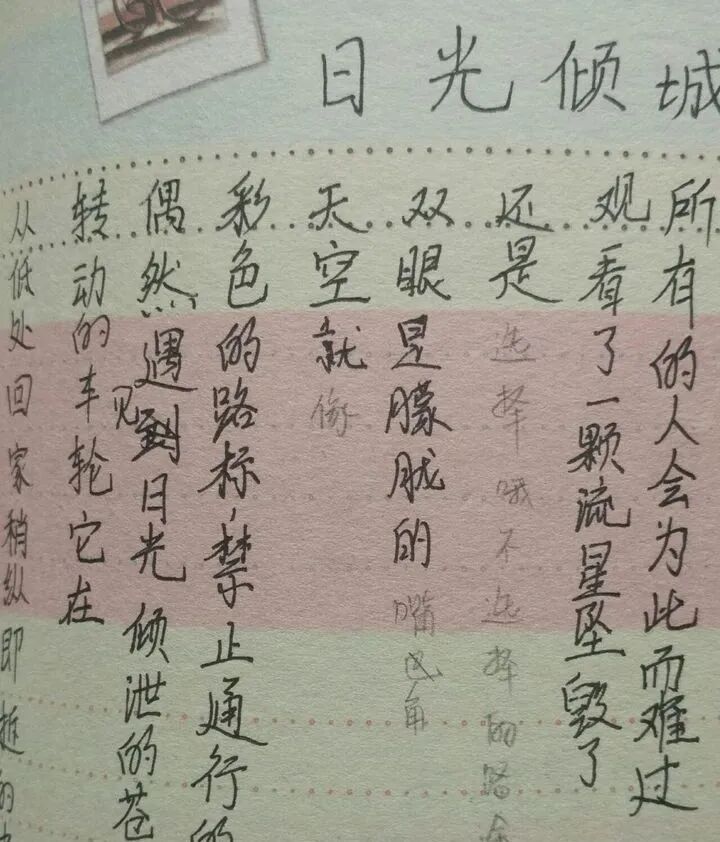 日光倾城
所有的人会为此而难过
观看了一颗流星坠毁了
还是选择哦不选择的路
双眼是朦胧的嘴巴角
天空就像
彩色的路标,禁止通行的
偶然遇见到日光倾泄的苍
转动的车轮它在
从低处回家稍纵即逝的